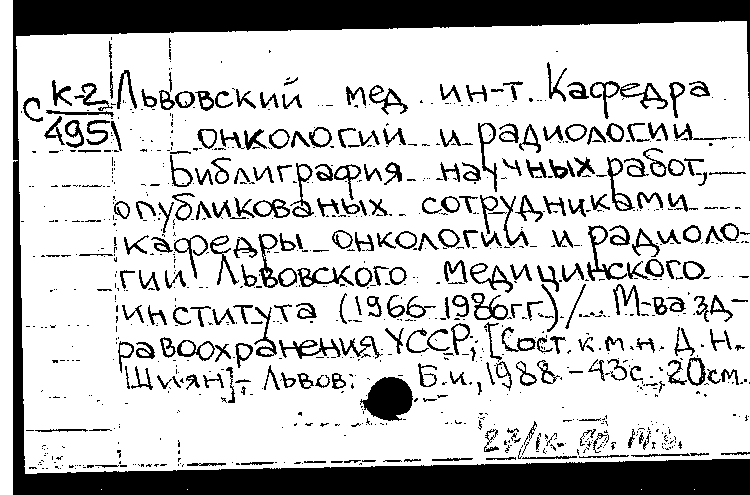 С К-2 Львовский мед. ин-т. Кафедра
4951 онкологии и радиологии.
Библиграфия научных работ,
опубликованых сотрудниками
кафедры онкологии и радиоло-
гии Львовского медицинского
института (1966-1986гг.) / М-ва зд-
равоохранения УССР; [Сост. к.м.н. Д.Н.
Шиян]- Львов: Б.и., 1988 - 43с., 20см.
27/IX-90.